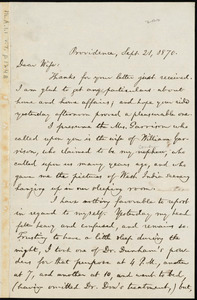 Providence, Sept. 21, 1870.
Dear Wife:
Thanks for your letter just received.
I am glad to get any particulars about
home and home affairs; and hope your ride
yesterday afternoon proved a pleasurable one.
I presume the Mrs. Garrison who
called upon you is the wife of William Gar-
rison, who claimed to be my nephew, who
called upon us many years ago, and who
gave me the pictures of West India scenery
hanging up in our sleeping room.
I have nothing favorable to report
in regard to myself. Yesterday my head
felt heavy and confused, and remains so.
Trusting to have a little sleep during the
night, I took one of Dr. Dunham's pow-
ders for that purpose at 4 P.M., another
at 7, and another at 10, and went to bed,
(having omitted Dr. Dow's treatment,) but,